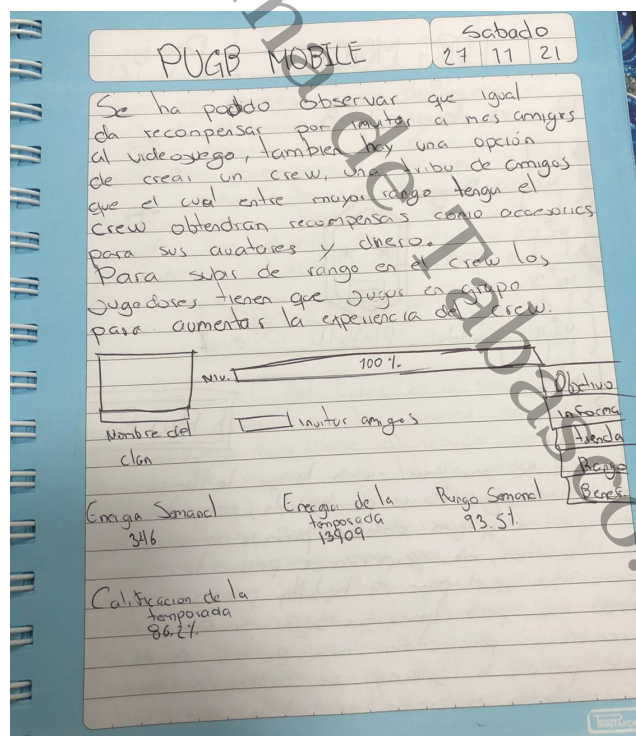 PUGB MOBILE
Sabado
27 11 21
Se ha podido observar que igual
da recompensas por invitar a mas amigos
al videojuego, tambien hay una opción
de crear un crew, una tribu de amigos
que el cual entre mayor rango tenga el
crew obtendran recompensas como accesorios
para sus avatares y dinero.
Para subir de rango en el crew los
jugadores tienen que jugar en grupo
para aumentar la experiencia del crew.
NIV. 100 %
Objetivo
Informa
tienda
Rango
Benef
Nombre del
clan
invitar amigos
Energia Semanal
346
Energia de la
temporada
13909
Rango Semanal
93.5%
Calificacion de la
temporada
86.2%
na de Tabasco.